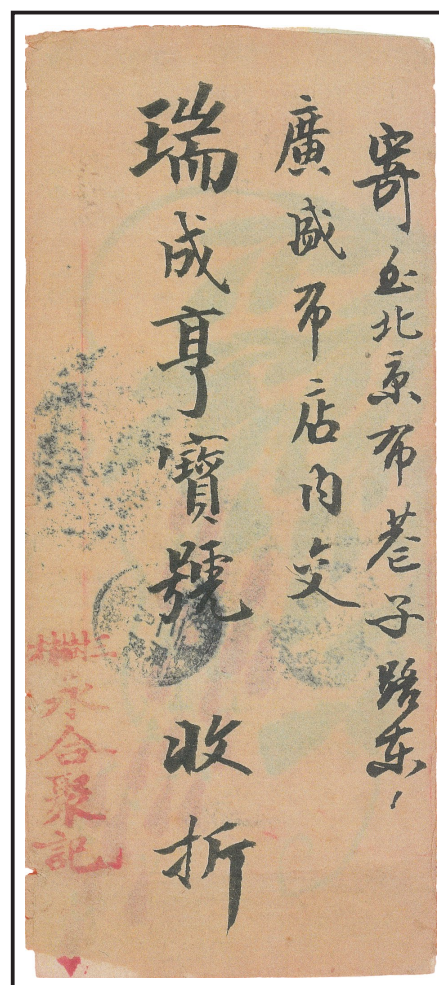 寄至北京布巷子路東
廣盛布店内交
瑞成亨寶號 收折
永合聚記